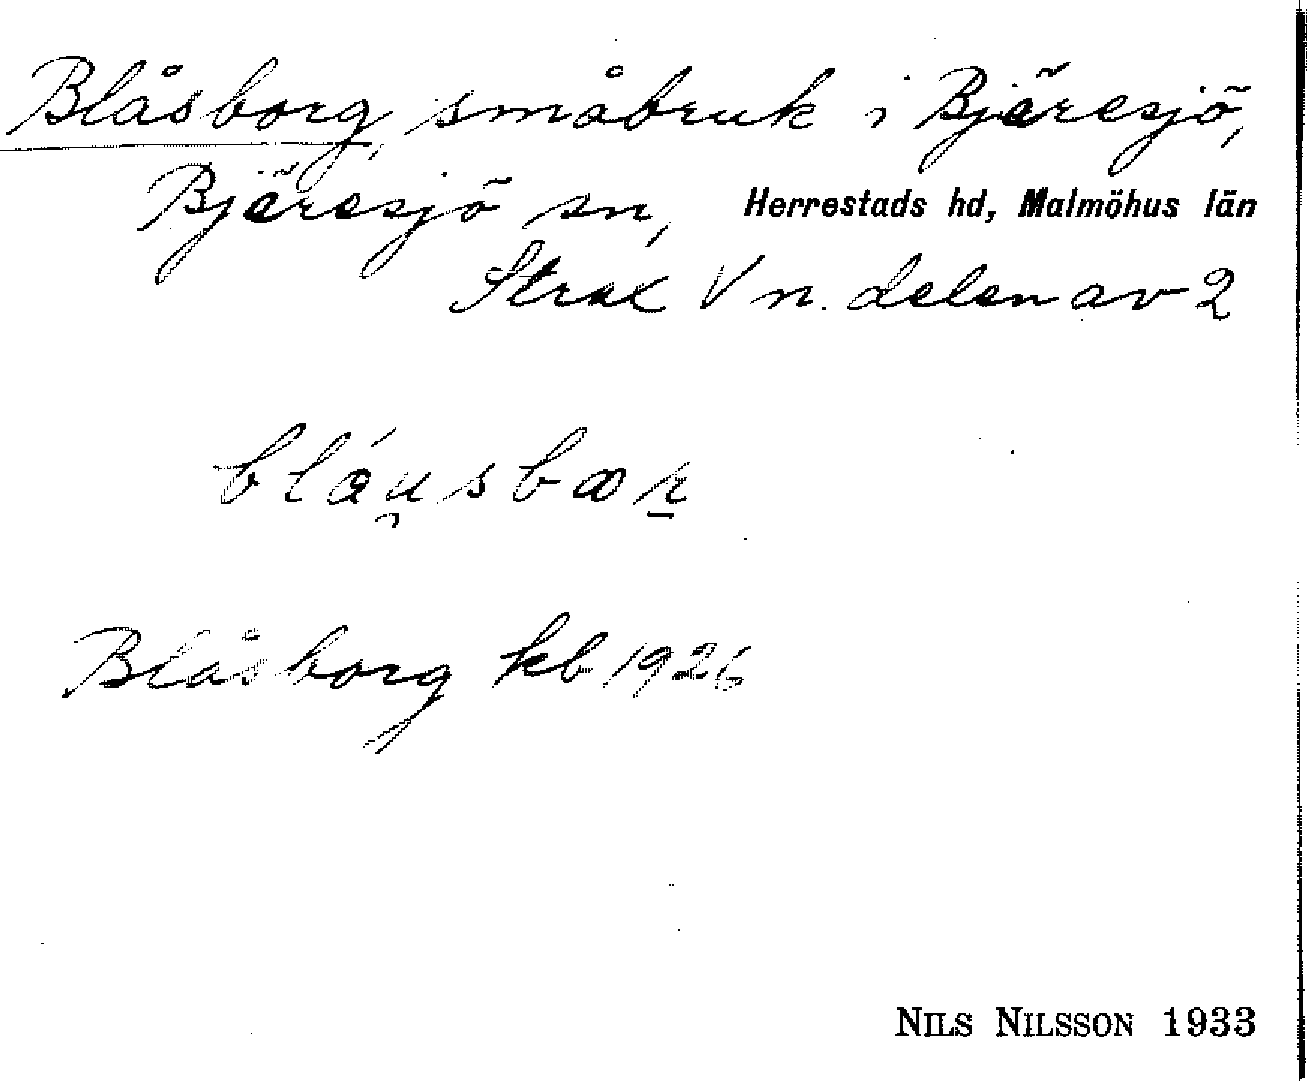 Blåsborg, småbruk i Bjäresjö,
Bjäresjö sn, Herrestads hd, Malmöhus län
Strax V n. delen av 2
bláu̯sbꝏṟ
Blåsborg kb 1926
NILS NILSSON 1933